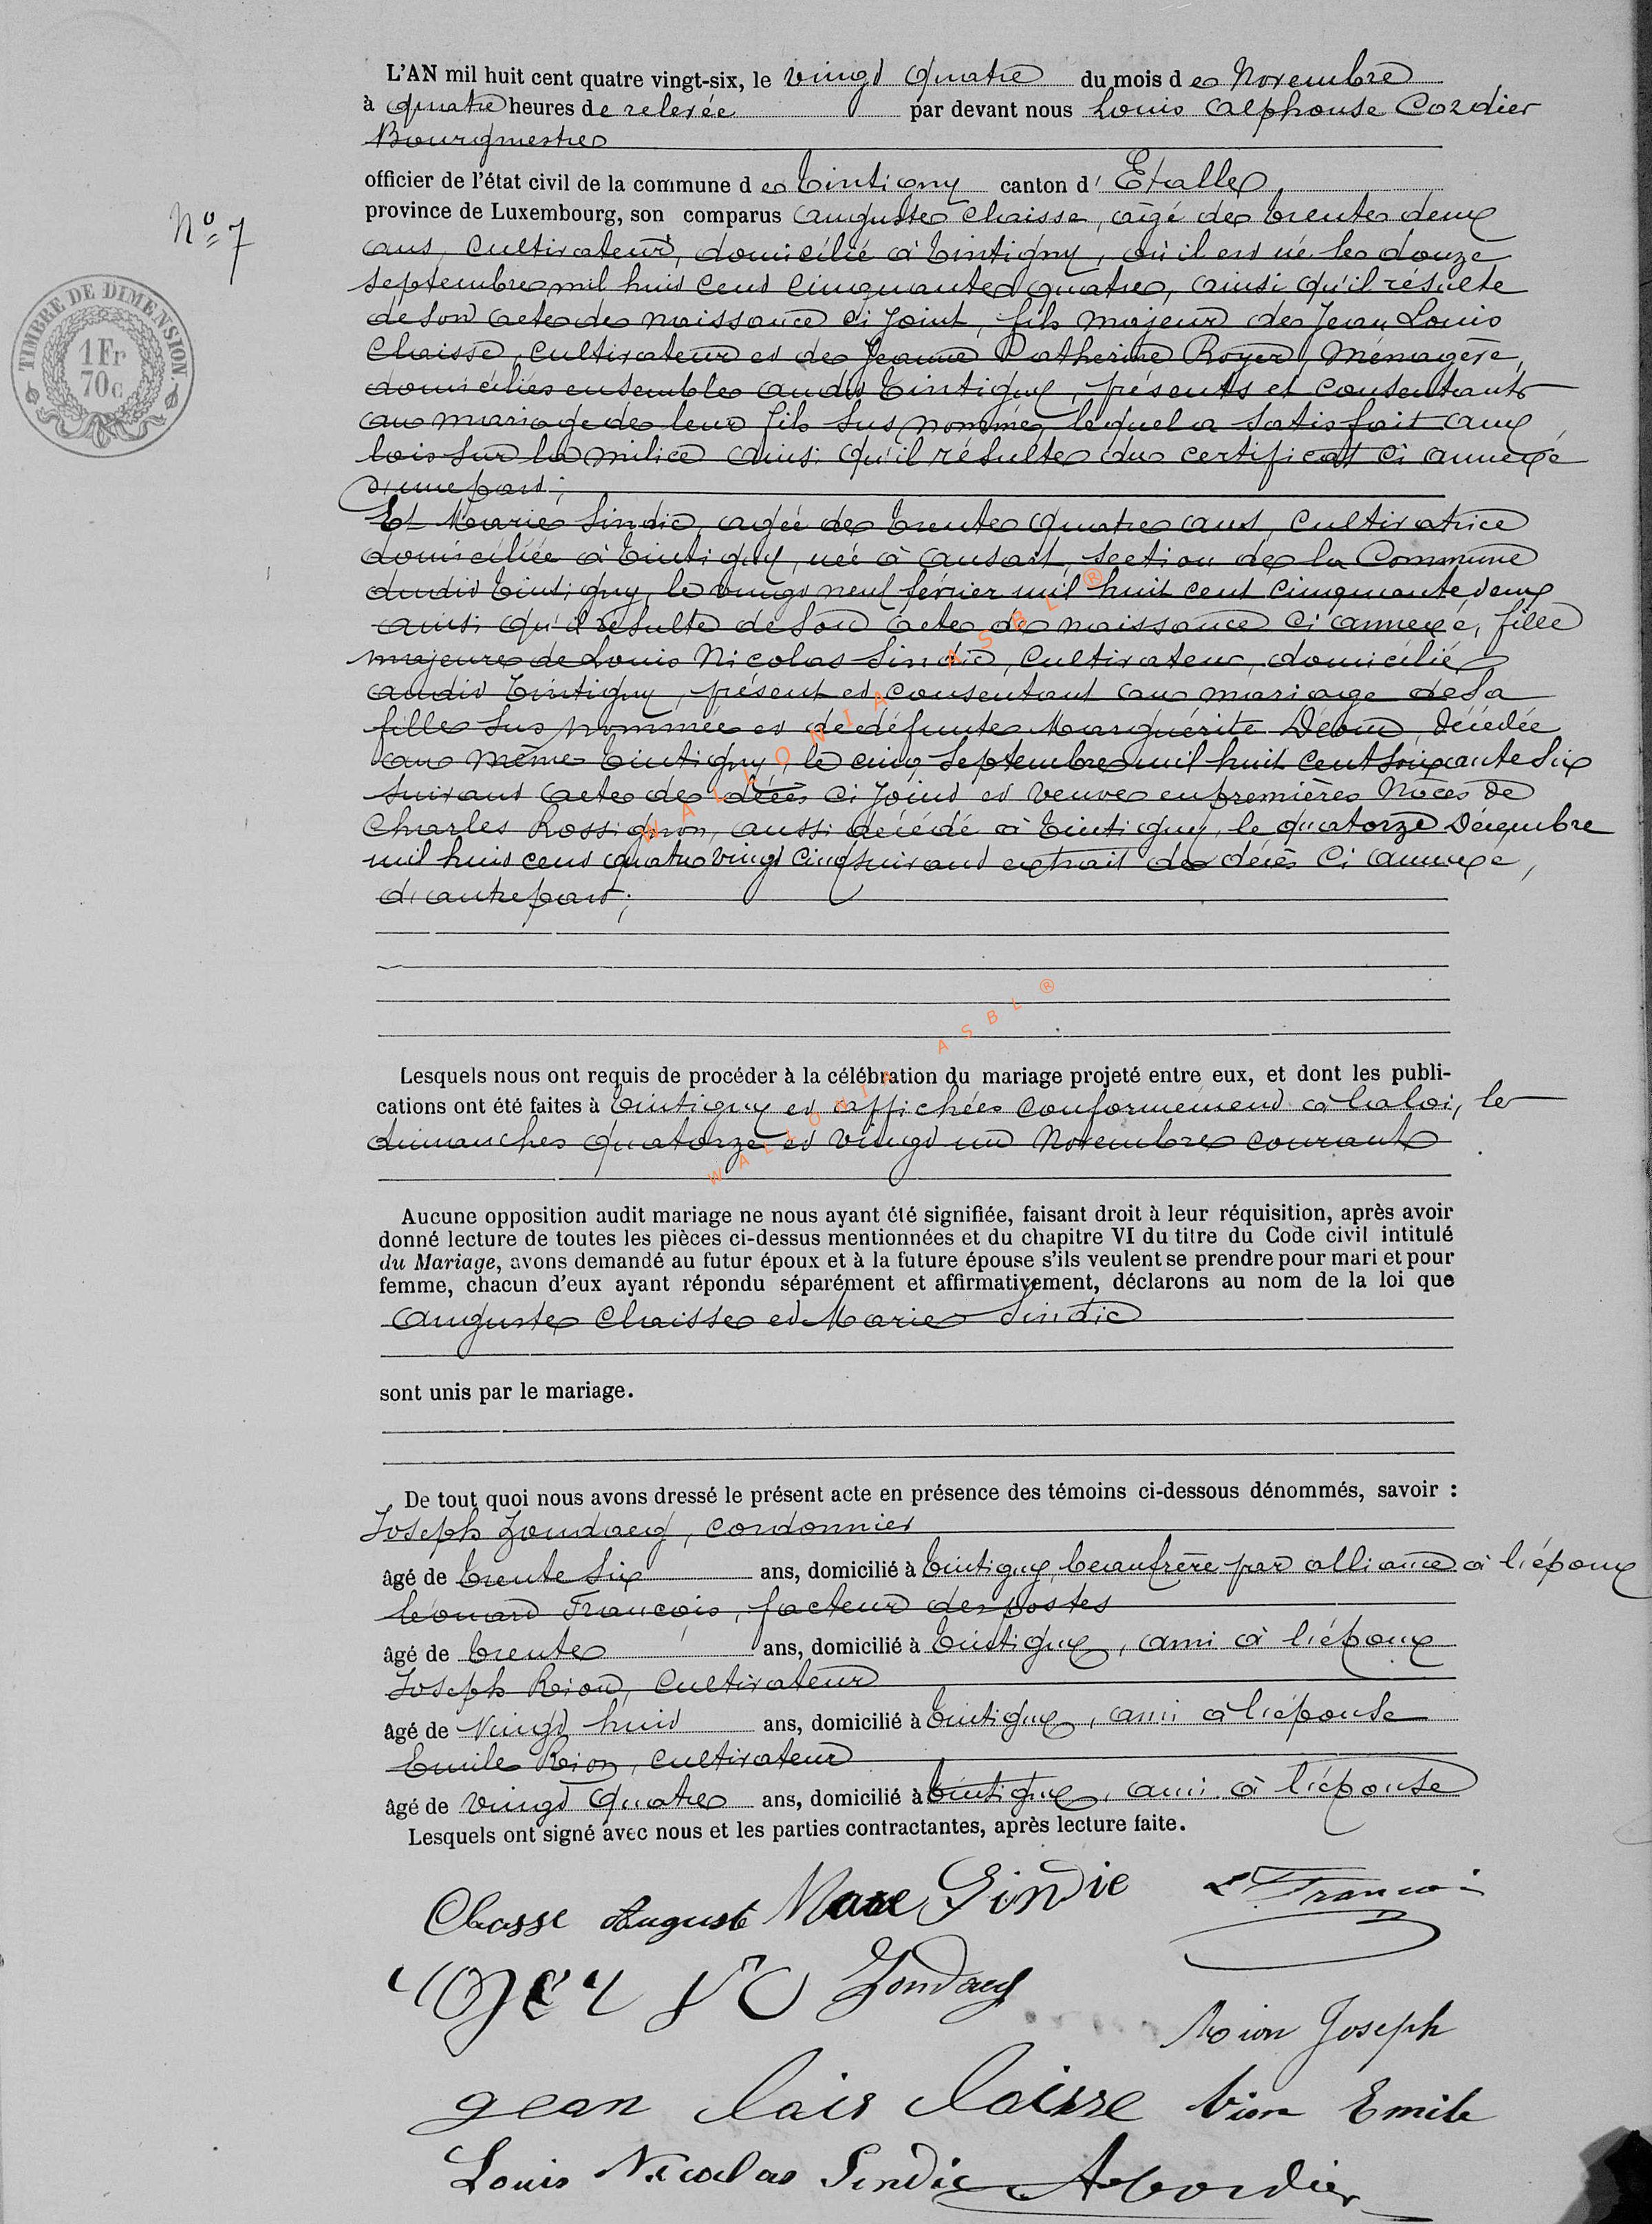 L'AN mil huit cent quatre vingt-six, le vingt quatre du mois de Novembre
à quatre heures de relevée par devant nous Louis Alphonse Cordier
Bourgmestre
officier de l'état civil de la commune de Tintigny canton d' Etalle
province de Luxembourg, son comparus Auguste Claisse, âgé de trente deux
ans, Cultivateur, domicilié à Tintigny, où il est né le douze
septembre mil huit cent cinquante quatre, ainsi qu'il résulte
de son acte de naissance ci joint, fils majeur de Jean Louis
Claisse, Cultivateur et de Jeanne Catherine Royer, Ménagère,
domiciliés ensemble audit Tintigny, présents et consentants
au mariage de leur fils sus nommé, lequel a satisfait aux
lois sur la milice ainsi qu'il résulte du certificat ci annexé
d'une part;
Et Marie Sindic, agée de trente quatre ans, Cultivatrice
domiciliée à Tintigny, née à Ansart, section de la Commune
dudit Tintigny, le vingt neuf février mil huit cent cinquante deux
ainsi qu'il résulte de son acte de naissance ci annexé, fille
majeure de Louis Nicolas Sindic, Cultivateur, domicilié
audit Tintigny, présent et consentant au mariage de sa
fille sus nommée et de défunte Marguérite décédée
au même Tintigny, le cinq Septembre mil huit cent soixante six
suivant acte de décès ci joint et veuve en premières Noces de
Charles Rossignon, aussi décédé à Tintigny, le quatorze Décembre
mil huit cent quatre vingt cinq suivant extrait de décès ci annexé,
d'autre part;
Lesquels nous ont requis de procéder à la célébration du mariage projeté entre eux, et dont les publi-
cations ont été faites à Tintigny et affichées conformément à la loi, les
dimanches quatorze et vingt un Novembre courant
Aucune opposition audit mariage ne nous ayant été signifiée, faisant droit à leur réquisition, après avoir
donné lecture de toutes les pièces ci-dessus mentionnées et du chapitre VI du titre du Code civil intitulé
du Mariage, avons demandé au futur époux et à la future épouse s'ils veulent se prendre pour mari et pour
femme, chacun d'eux ayant répondu séparément et affirmativement, déclarons au nom de la loi que
Auguste Claisse et Marie Sindic
sont unis par le mariage.
De tout quoi nous avons dressé le présent acte en présence des témoins ci-dessous dénommés, savoir :
Joseph cordonnier
âgé de trente six ans, domicilié à Tintigny, beaufrère par alliance à l'époux
Léonard François, facteur des postes
âgé de trente ans, domicilié à Tintigny, ami à l'époux
Joseph Rion, Cultivateur
âgé de vingt huit ans, domicilié à Tintigny, ami à l'épouse
Emile Rion, cultivateur
âgé de vingt quatre ans, domicilié à Tintigny, ami à l'épouse
Lesquels ont signé avec nous et les parties contractantes, après lecture faite.
Classe August Marie Sindic L François
Rion Joseph
gean lois laisse Rion Emile
Louis Nicolas Sindic A Cordier
N° 7
TIMBRE DE DIMENSION
1 Fr
70c
WALLONIA ASBL ®
WALLONIA ASBL ®